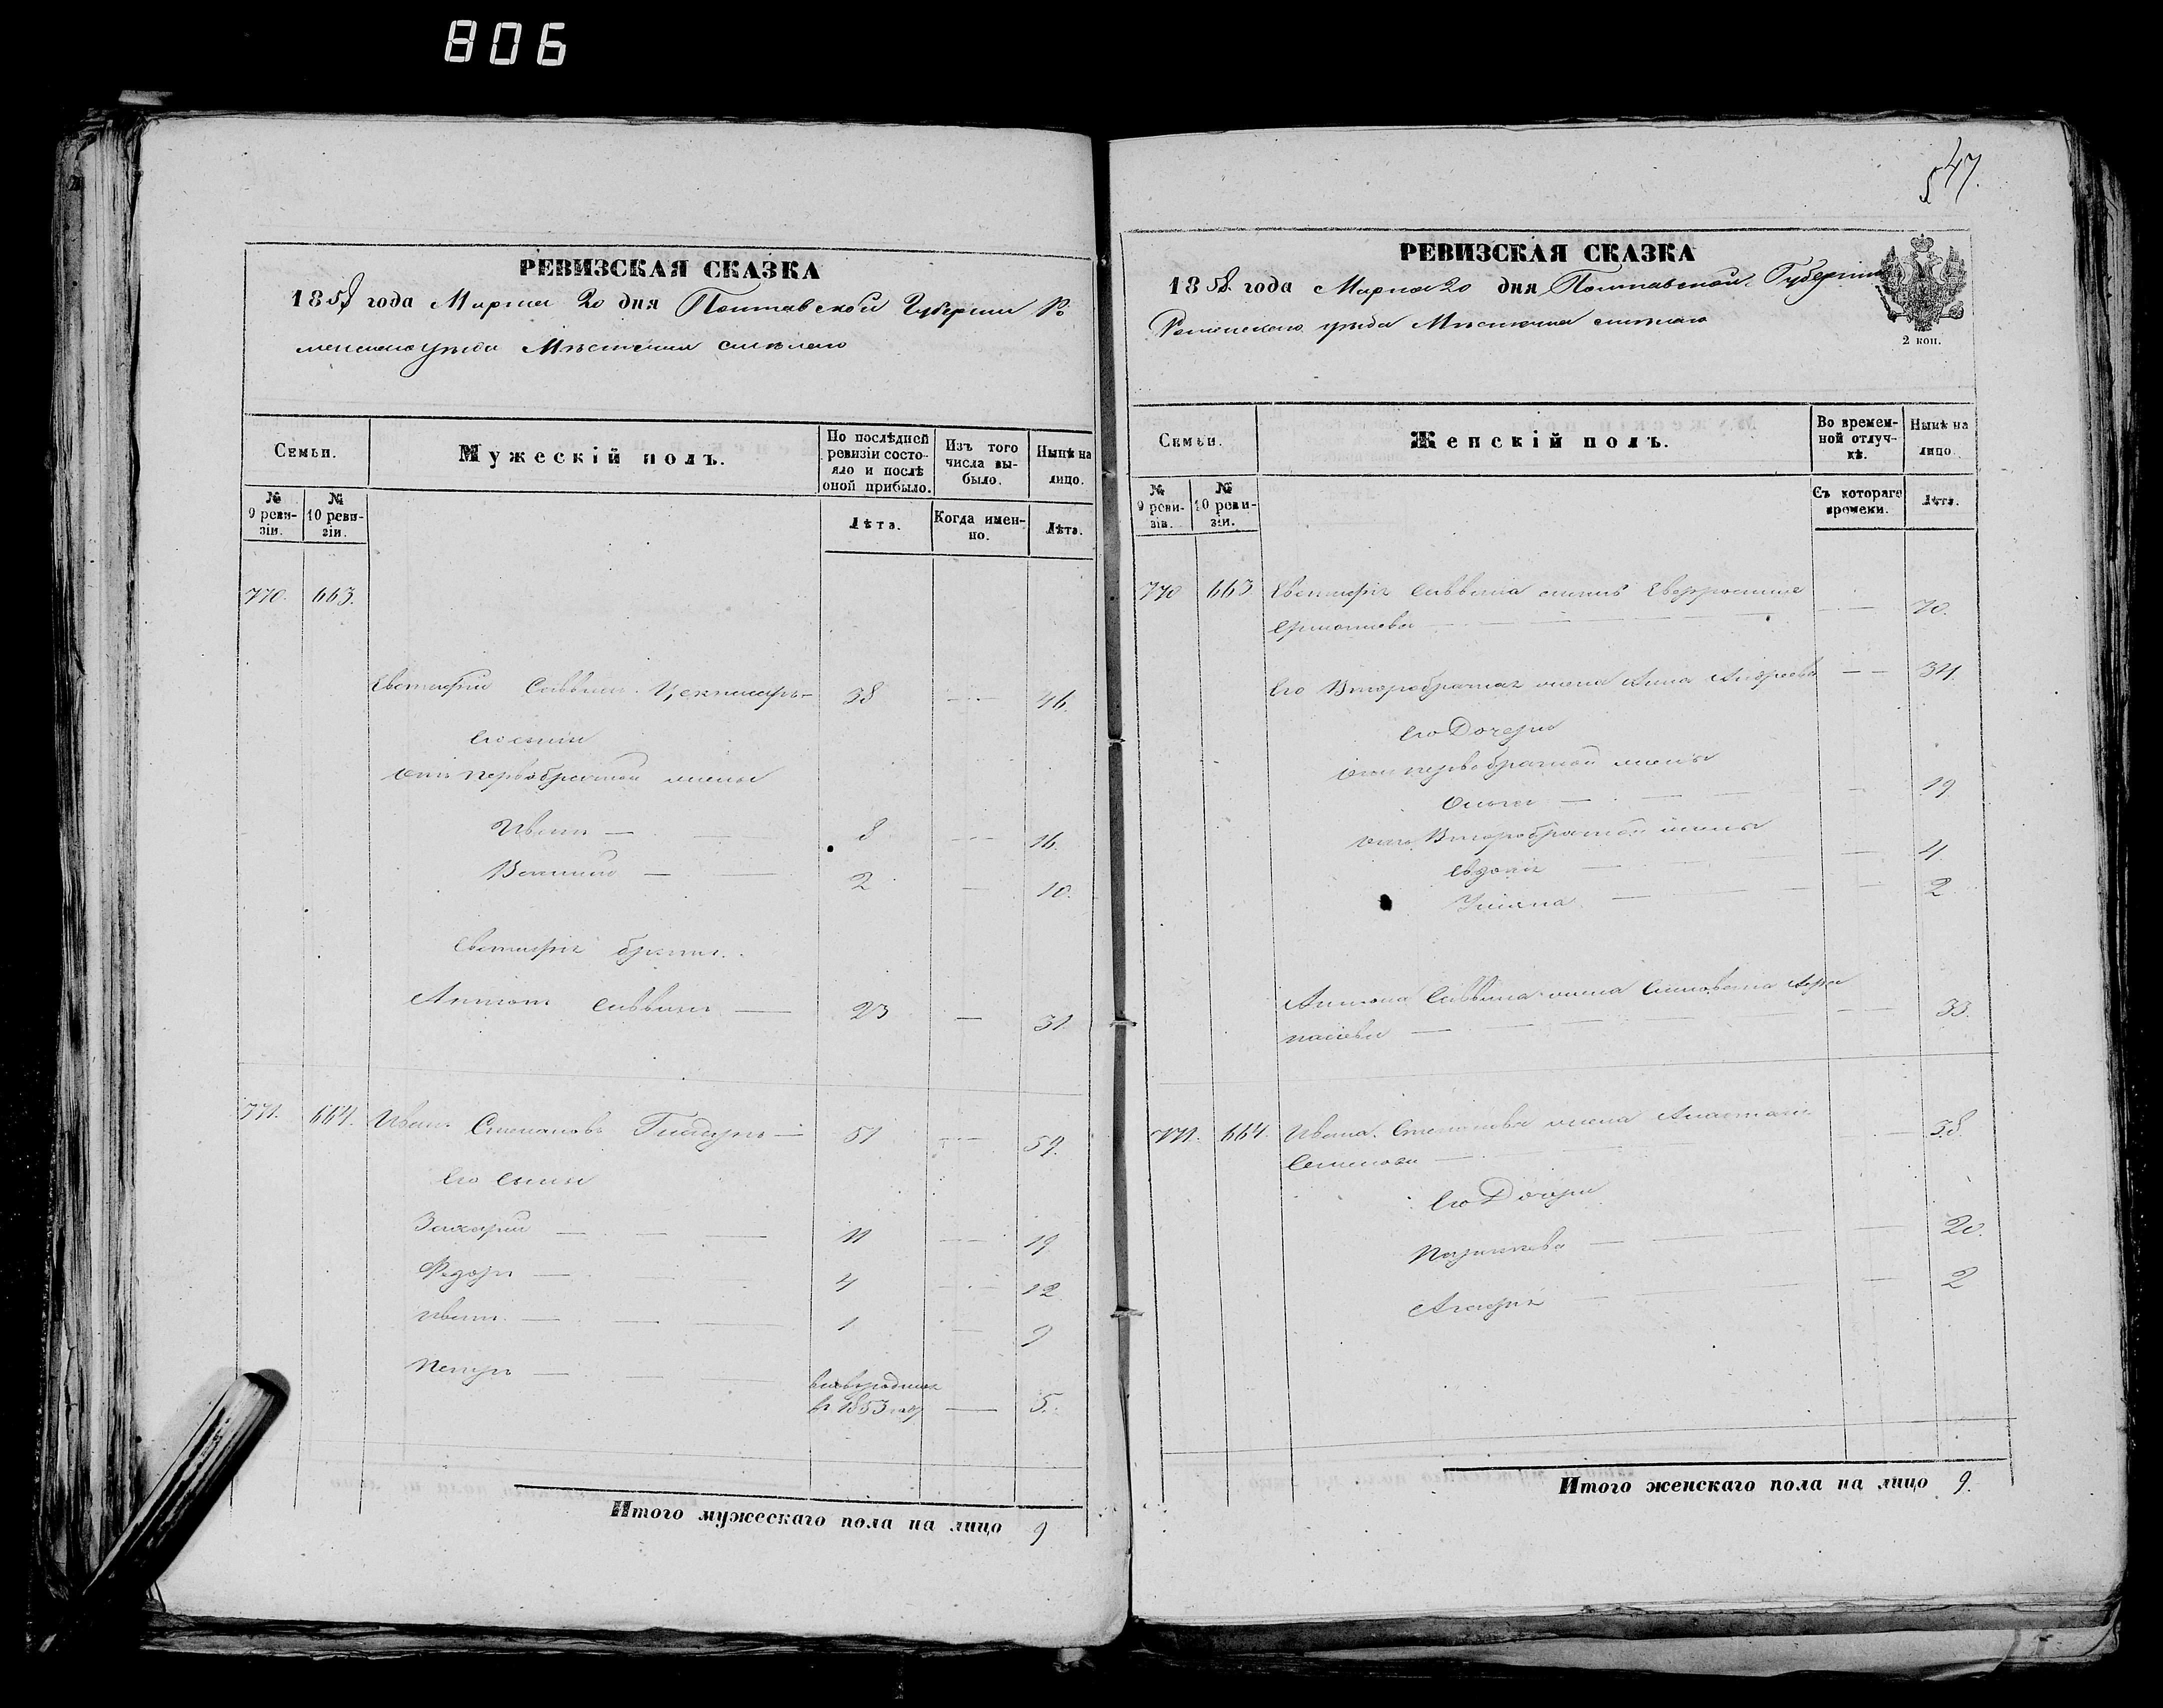 806
547.
РЕВИЗСКАЯ СКАЗКА
1858 года Марта 20 дня Полтавской Губерніи Ро
менскаго уѣзда Мѣстечка Смѣлаго
Семьи.
Мужескій полъ.
По послѣдней ревизіи состояло и послѣ оной прибыло.
Изъ того числа выбыло.
Нынѣ на лицо.
№ 9 ревизіи.
№ 10 ревизіи.
Лѣта.
Когда именно.
Лѣта.
770. 663.
Евстафій Саввинъ 38 46.
Его сыны
отъ первобрачной жены
Иванъ 8 16.
Василій 2 10.
Евстафія братъ
Антонъ Саввинъ 23 31
771. 664. Иванъ Степановъ 51 59.
Его сыны
Захарій 11 19
Федоръ 4 12
Иванъ 1 9
Петръ
въ 1853 году 5.
Итого мужескаго пола на лицо 9
РЕВИЗСКАЯ СКАЗКА
1858 года Марта 20 дня Полтавской Губерніи
Роменскаго уѣзда Мѣстечка Смѣлаго
2 коп.
Семьи.
Женскій полъ.
Во временной отлучкѣ.
Нынѣ на лицо.
№ 9 ревизіи.
№ 10 ревизіи.
Съ котораго времени.
Лѣта.
770 663 Евстафія Саввина 70.
Его второбрачная жена Анна Андреева 34.
Его Дочери
отъ первобрачной жены
19
отъ второбрачной жены
Евдокія 4
Ульяна 2
Антона Саввина жена Афа
насіева 33.
771. 664. Ивана Степанова жена Анастасія
58.
Его Дочери
20.
2
Итого женскаго пола на лицо 9.